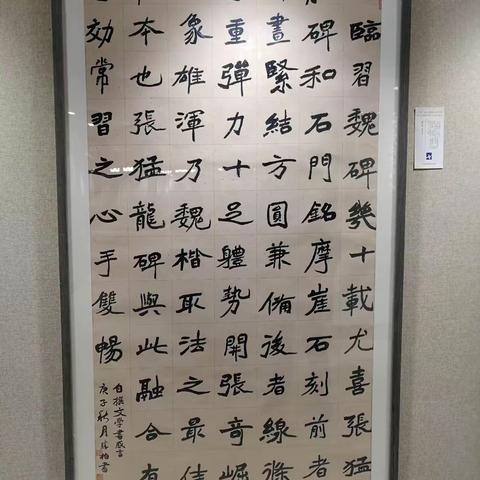 臨習魏碑幾十載尤喜張猛
碑和石門銘摩崖石刻前者
畫緊結方圓兼俻後者線條
重彈力十足體勢開張奇崛
象雄渾乃魏楷取法之最佳
本也張猛龍碑與此融合有
効常習之心手雙暢
自撰文學書感言
庚子秋月柏書